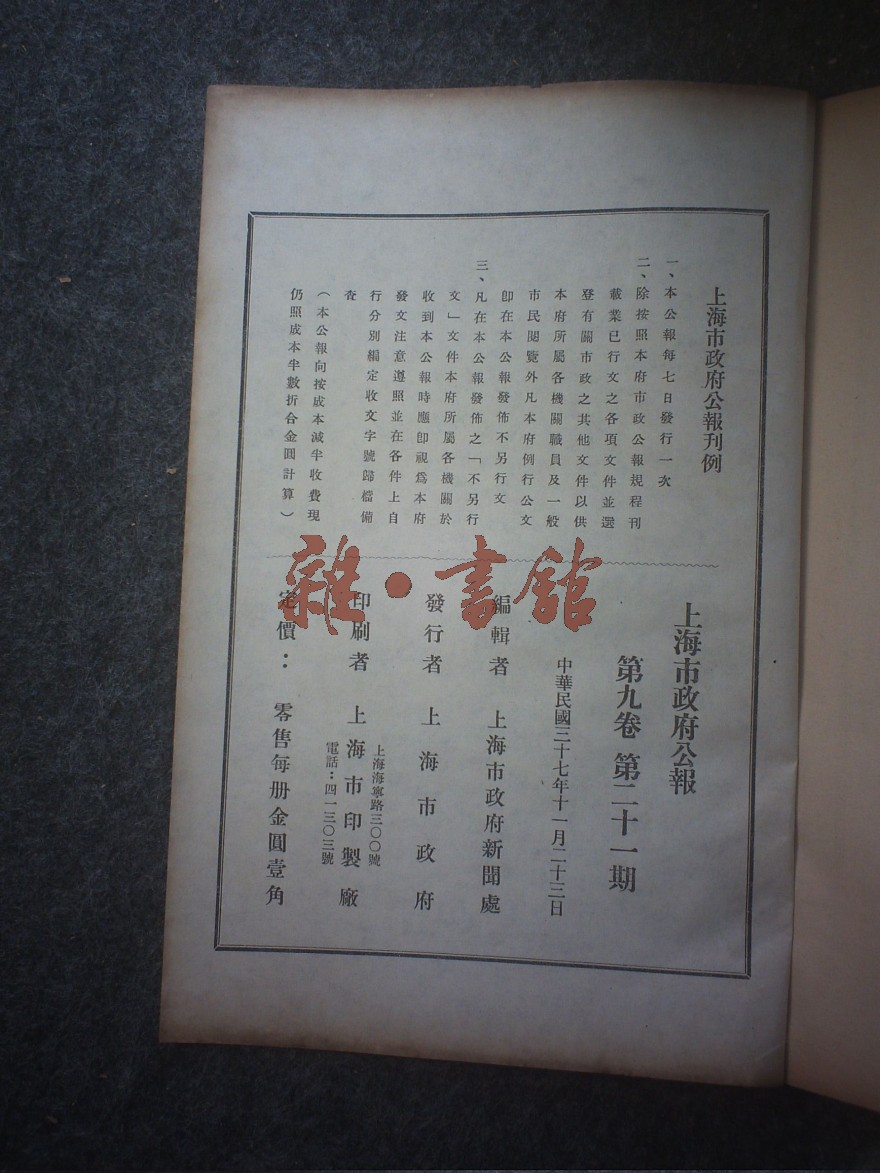 上海市政府公報刊例
一、本公報每七日發行一次
二、除按照本府市政公報規程刊
載業已行文之各項文件並選
登有關市政之其他文件以供
本府所屬各機關職員及一般
市民閱覽外凡本府例行公文
卽在本公報發佈不另行文
三、凡在本公報發佈之「不另行
文」文件本府所屬各機關於
收到本公報時應卽視爲本府
發文注意遵照並在各件上自
行分別編定收文字號歸檔備
查
（本公報向按成本減半收費現
仍照成本半數折合金圓計算）
上海市政府公報
第九卷 第二十一期
中華民國三十七年十一月二十三日
編輯者 上海市政府新聞處
發行者 上海市政府
印刷者 上海市印製廠
上海海寧路三〇〇號
電話：四一三〇三號
定價：零售每册金圓壹角
雜·書館